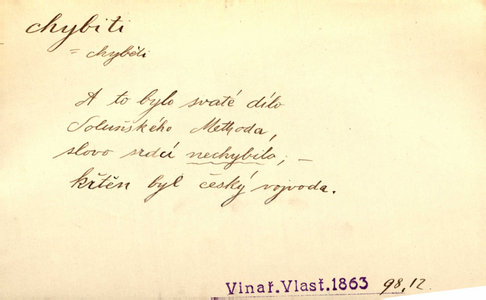 chybiti
= chyběti
A to bylo svaté dílo
Soluňského Methoda,
slovo srdcí nechybilo; –
křtěn byl český vojvoda.
Vinař. Vlasť. 1863 98, 12.